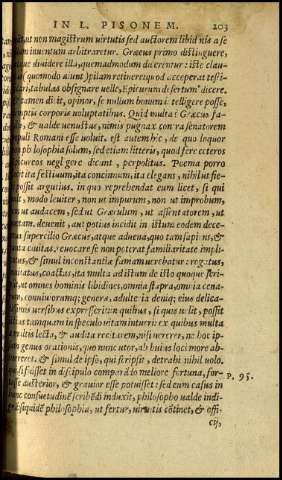 IN L. PISONEM. 203
ut non magistrum virtutis sed auctorem libidinis a se
inuentum arbitraretur. Græcus primo distinguere,
diuidere illa, quemadmodum dicerentur: iste clau-
quomodo aiunt) pilam retinere quod acceperat testi-
tabulas obsignare uelle, Epicurum disertum dicere.
tamen dicit, opinor, se nullum bonum intelligere posse,
corporis uoluptatibus. Quid multa? Græcus fa-
& ualde uenustus, nimis pugnax contra senatorem
populi Romani esse uoluit. est autem hic, de quo loquor
philosophia solum, sed etiam litteris, quod fere ceteros
negligere dicunt, perpolitus. Poema porro
ita festiuum, ita concinnum, ita elegans, nihil ut fie-
possit argutius. in quo reprehendat eum licet, si qui
modo leuiter, non ut impurum, non ut improbum,
ut audacem, sed ut Græculum, ut assentatorem, ut
poetam. deuenit, aut potius incidit in istum eodem dece-
supercilio Græcus, atque aduena, quo tam sapiens, &
ciuitas. reuocare se non poterat familiaritate impli-
& simul inconstantiæ famam uerebatur: rogatus,
inuitatus, coactus, ita multa ad istum de isto quoque scri-
ut omnes hominis libidines, omnia stupra, omnia cenarum,
conuiuiorumq; genera, adulteria deniq; eius delica-
uersibus expresserit. in quibus, si quis uelit, possit
istius tanquam in speculo uitam intueri: ex quibus multa
lecta, & audita recitarem, ni uererer, ne hoc ip-
genus orationis, quo nunc utor, ab huius loci more ab-
& simul de ipso, qui scripsit, detrahi nihil uolo.
si fuisset in discipulo comparando meliore fortuna, for-
austerior, & grauior esse potuisset: sed eum casus in
hanc consuetudinē scribēdi induxit, philosopho ualde indi- P. 95.
siquidē philosophia, ut fertur, uirtutis cōtinet, & offi-
cij,